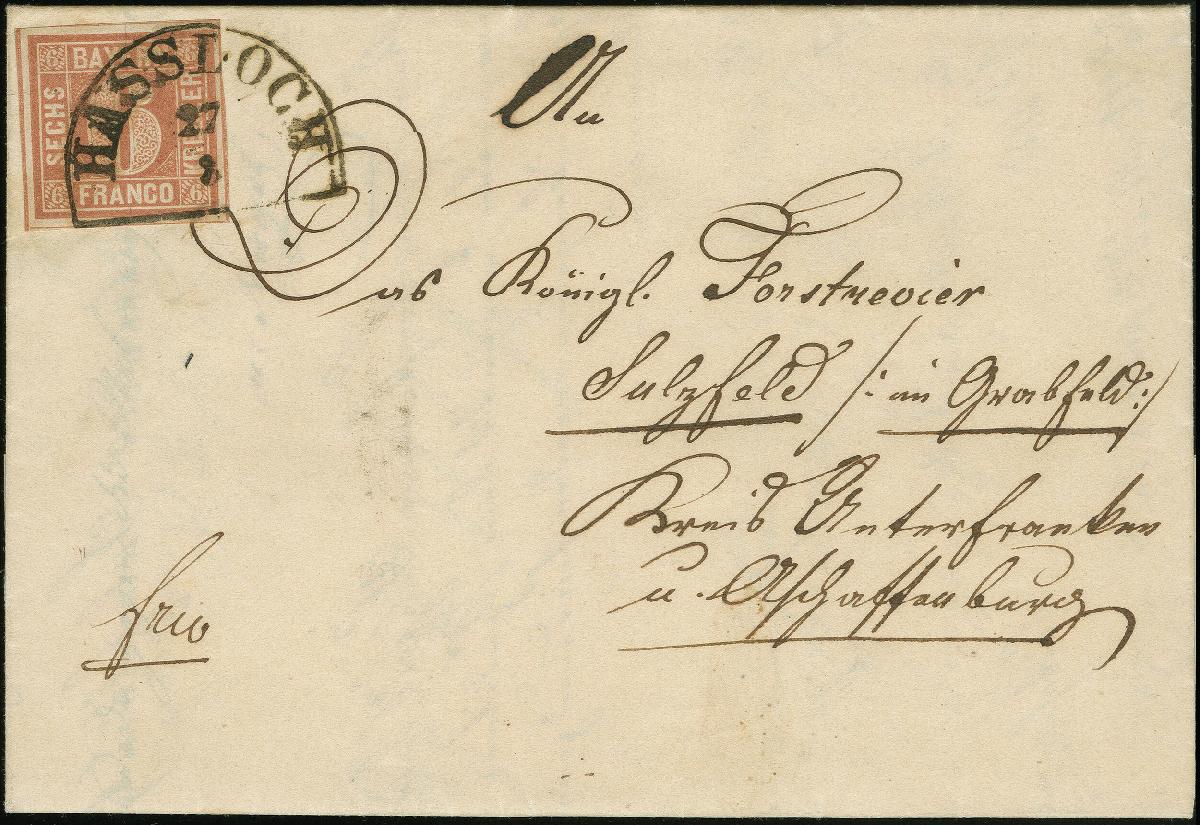 BAYERN
SECHS
KREUZER
FRANCO
6 6 6 6
HASSLOCH
27
8
An
das Königl. Forstrevier
Sulzfeld /: im Grabfeld :/
Kreis Unterfranken
u. Aschaffenburg
frco